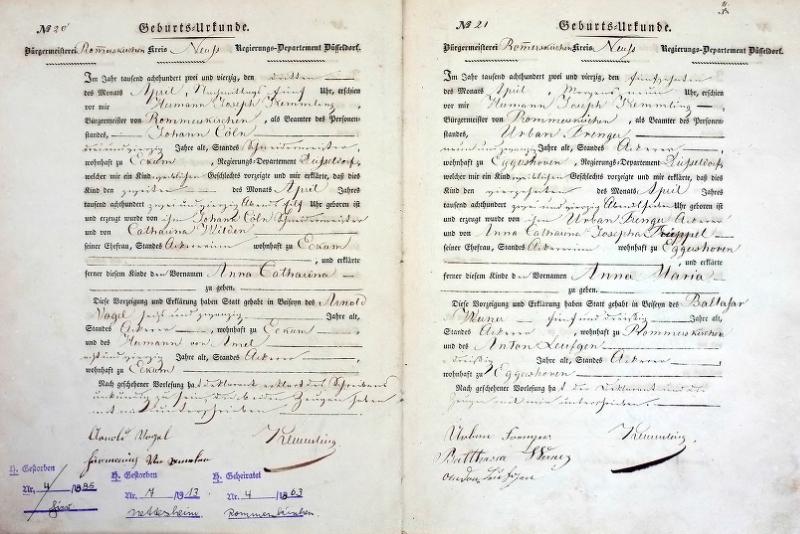 № 20
Geburts-Urkunde.
Bürgermeisterei Rommerskirchen Kreis Neuß Regierungs-Departement Düsseldorf.
Im Jahr tausend achthundert zwei und vierzig, den dritten
des Monats April, Nachmittags fünf Uhr, erschien
vor mir Hermann Joseph Kemmling
Bürgermeister von Rommerskirchen, als Beamter des Personen-
standes, Johann Cöln
Jahre alt, Standes Schneidermeister
wohnhaft zu Eckum, Regierungs-Departement Düsseldorf,
welcher mir ein Kind weiblichen Geschlechts vorzeigte und mir erklärte, daß dies
Kind den zweiten des Monats April Jahres
tausend achthundert zwei und vierzig Abends elf Uhr geboren ist
und erzeugt wurde von ihm Johann Cöln Schneidermeister
und von Catharina Wilden
seiner Ehefrau, Standes Ackerin wohnhaft zu Eckum
, und erklärte
ferner diesem Kinde den Vornamen Anna Catharina
zu geben.
Diese Vorzeigung und Erklärung haben Statt gehabt in Beiseyn des Arnold
Vogel sechs und zwanzig Jahre alt,
Standes Ackerer, wohnhaft zu Eckum,
und des Hermann von Amel
acht und zwanzig Jahre alt, Standes Ackerer
wohnhaft zu Eckum
Nach geschehener Vorlesung hat Deklarant erklärt des Schreibens
unkundig zu sein, die beiden Zeugen haben
mit mir unterschrieben.
Arnold Vogel Kemmling
Hermann Von
H. Gestorben
Nr. 4 / 1886
H. Gestorben
Nr. 17 / 1913
Nettesheim
H. Geheiratet
Nr. 4 / 1863
Rommerskirchen
№ 21
Geburts-Urkunde.
Bürgermeisterei Rommerskirchen Kreis Neuß Regierungs-Departement Düsseldorf.
Im Jahr tausend achthundert zwei und vierzig, den fünfzehnten
des Monats April, Morgens neun Uhr, erschien
vor mir Hermann Joseph Kemmling
Bürgermeister von Rommerskirchen, als Beamter des Personen-
standes, Urban Frenger
neun und zwanzig Jahre alt, Standes Ackerer
wohnhaft zu Eggershoven, Regierungs-Departement Düsseldorf,
welcher mir ein Kind weiblichen Geschlechts vorzeigte und mir erklärte, daß dies
Kind den vierzehnten des Monats April Jahres
tausend achthundert zwei und vierzig Abends Uhr geboren ist
und erzeugt wurde von ihm Urban Frenger Ackerer
und von Anna Catharina Josepha Trippel
seiner Ehefrau, Standes Ackerin wohnhaft zu Eggershoven
, und erklärte
ferner diesem Kinde den Vornamen Anna Maria
zu geben.
Diese Vorzeigung und Erklärung haben Statt gehabt in Beiseyn des Baltasar
fünf und dreißig Jahre alt,
Standes Ackerer, wohnhaft zu Rommerskirchen
und des Anton Leufgen
dreißig Jahre alt, Standes Ackerer
wohnhaft zu Eggershoven
Nach geschehener Vorlesung hat der Deklarant und die
Zeugen mit mir unterschrieben.
Urban Frenger Kemmling
Balthasar